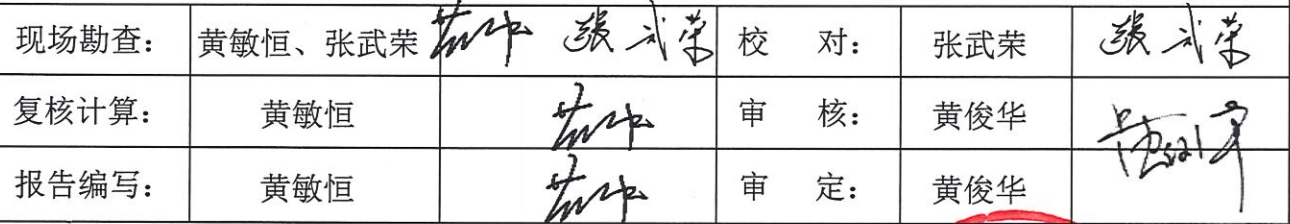 现场勘查： 黄敏恒、张武荣 张武荣 校 对： 张武荣 张武荣
复核计算： 黄敏恒 审 核： 黄俊华
报告编写： 黄敏恒 审 定： 黄俊华